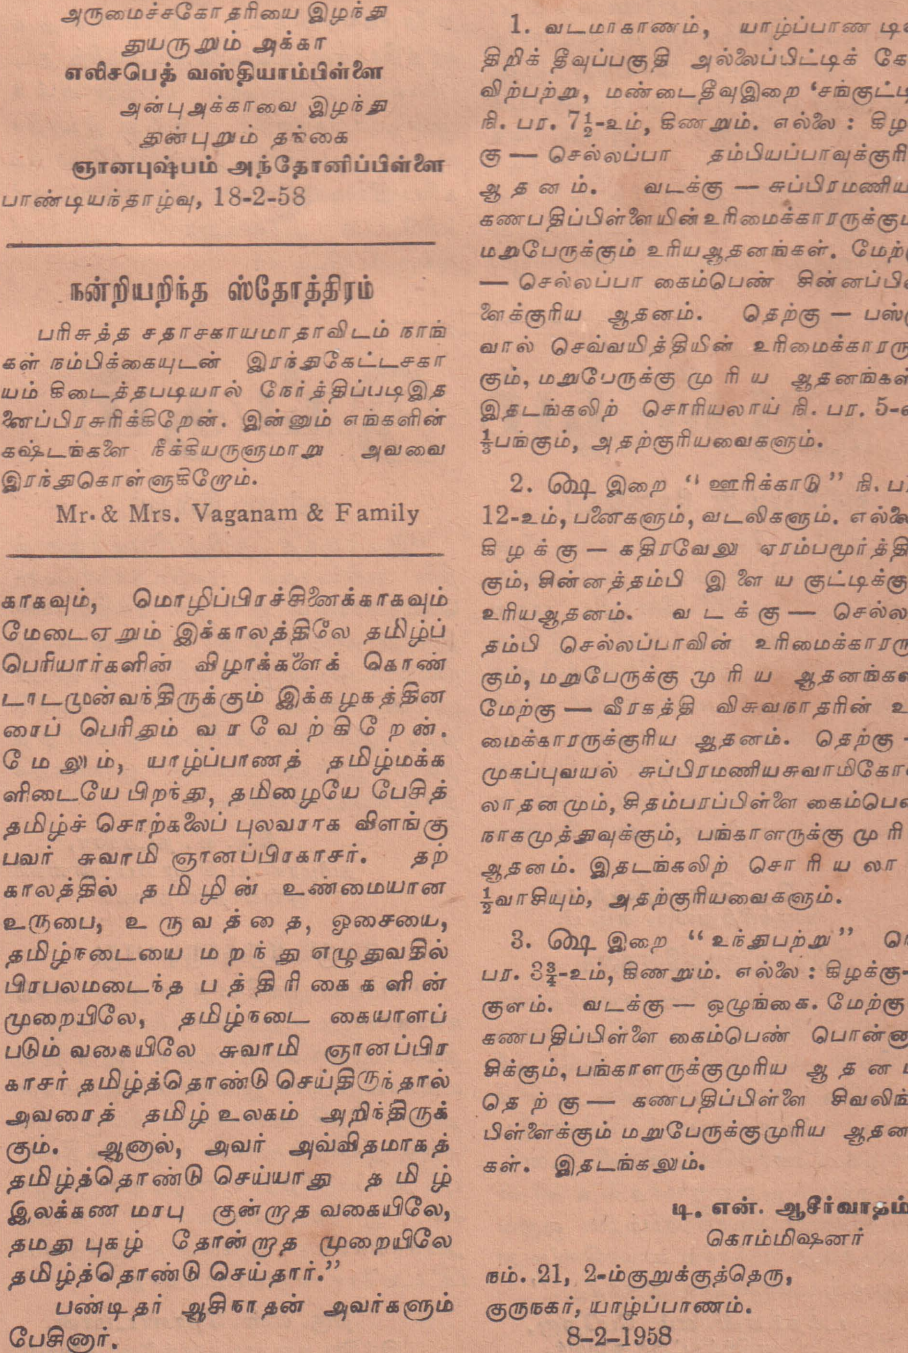 அருமைச்சகோதரியை இழந்து
துயருறும் அக்கா
எலிசபெத் வஸ்தியாம்பிள்ளை
அன்புஅக்காவை இழந்து
துன்புறும் தங்கை
ஞானபுஷ்பம் அந்தோனிப்பிள்ளை
பாண்டியந்தாழ்வு, 18-2-58
நன்றியறிந்த ஸ்தோத்திரம்
பரிசுத்த சதாசகாயமாதாவிடம் நாங்
கள் நம்பிக்கையுடன் இரந்துகேட்டசகா
யம் கிடைத்தபடியால் நேர்த்திப்படிஇத
னைப்பிரசுரிக்கிறேன். இன்னும் எங்களின்
கஷ்டங்களை நீக்கியருளுமாறு அவவை
இரந்துகொள்ளுகிறோம்.
Mr. & Mrs. Vaganam & Family
காகவும், மொழிப்பிரச்சினைக்காகவும்
மேடைஏறும் இக்காலத்திலே தமிழ்ப்
பெரியார்களின் விழாக்களைக் கொண்
டாடமுன்வந்திருக்கும் இக்கழகத்தின
ரைப் பெரிதும் வரவேற்கிறேன்.
மேலும், யாழ்ப்பாணத் தமிழ்மக்க
ளிடையே பிறந்து, தமிழையே பேசித்
தமிழ்ச் சொற்கலைப் புலவராக விளங்கு
பவர் சுவாமி ஞானப்பிரகாசர். தற்
காலத்தில் தமிழின் உண்மையான
உருபை, உருவத்தை, ஓசையை,
தமிழ்நடையை மறந்து எழுதுவதில்
பிரபலமடைந்த பத்திரிகைகளின்
முறையிலே, தமிழ்நடை கையாளப்
படும் வகையிலே சுவாமி ஞானப்பிர
காசர் தமிழ்த்தொண்டு செய்திருந்தால்
அவரைத் தமிழ் உலகம் அறிந்திருக்
கும். ஆனால், அவர் அவ்விதமாகத்
தமிழ்த்தொண்டு செய்யாது தமிழ்
இலக்கண மரபு குன்றாத வகையிலே,
தமது புகழ் தோன்றாத முறையிலே
தமிழ்த்தொண்டு செய்தார்.”
பண்டிதர் ஆசிநாதன் அவர்களும்
பேசினார்.
1. வடமாகாணம், யாழ்ப்பாண டி
திறிக் தீவுப்பகுதி அல்லைப்பிட்டிக் கோ
விற்பற்று, மண்டைதீவுஇறை ‘சங்குட்டி
நி. பர. 7½-உம், கிணறும். எல்லை : கிழ
கு — செல்லப்பா தம்பியப்பாவுக்குரி
ஆதனம். வடக்கு — சுப்பிரமணிய
கணபதிப்பிள்ளையின்உரிமைக்காரருக்கும்
மறுபேருக்கும் உரியஆதனங்கள். மேற்
— செல்லப்பா கைம்பெண் சின்னப்பி
ளைக்குரிய ஆதனம். தெற்கு — பஸ்
வால் செவ்வயித்தியின் உரிமைக்காரரு
கும், மறுபேருக்குமுரிய ஆதனங்கள்
இதடங்கலிற் சொரியலாய் நி. பர. 5-
½பங்கும், அதற்குரியவைகளும்.
2. ௸ இறை “ஊரிக்காடு” நி. ப
12-உம், பனைகளும், வடலிகளும். எல்லை
கிழக்கு — கதிரவேலு ஏரம்பமூர்த்தி
கும், சின்னத்தம்பி இளையகுட்டிக்கு
உரியஆதனம். வடக்கு — செல்ல
தம்பி செல்லப்பாவின் உரிமைக்காரரு
கும், மறுபேருக்குமுரிய ஆதனங்கள்
மேற்கு — வீரகத்தி விசுவநாதரின் உ
மைக்காரருக்குரிய ஆதனம். தெற்கு —
முகப்புவயல் சுப்பிரமணியசுவாமிகோ
லாதனமும், சிதம்பரப்பிள்ளை கைம்பெ
நாகமுத்துவுக்கும், பங்காளருக்குமுரி
ஆதனம். இதடங்கலிற் சொரியலா
½வாசியும், அதற்குரியவைகளும்.
3. ௸ இறை “உந்துபற்று”
பர. 3¾-உம், கிணறும். எல்லை : கிழக்கு-
குளம். வடக்கு — ஒழுங்கை. மேற்கு
கணபதிப்பிள்ளை கைம்பெண் பொன்னு
சிக்கும், பங்காளருக்குமுரிய ஆதன
தெற்கு — கணபதிப்பிள்ளை சிவலிங்
பிள்ளைக்கும் மறுபேருக்குமுரிய ஆதன
கள். இதடங்கலும்.
டி. என். ஆசீர்வாதம்
கொம்மிஷனர்
நம். 21, 2-ம்குறுக்குத்தெரு,
குருநகர், யாழ்ப்பாணம்.
8-2-1958